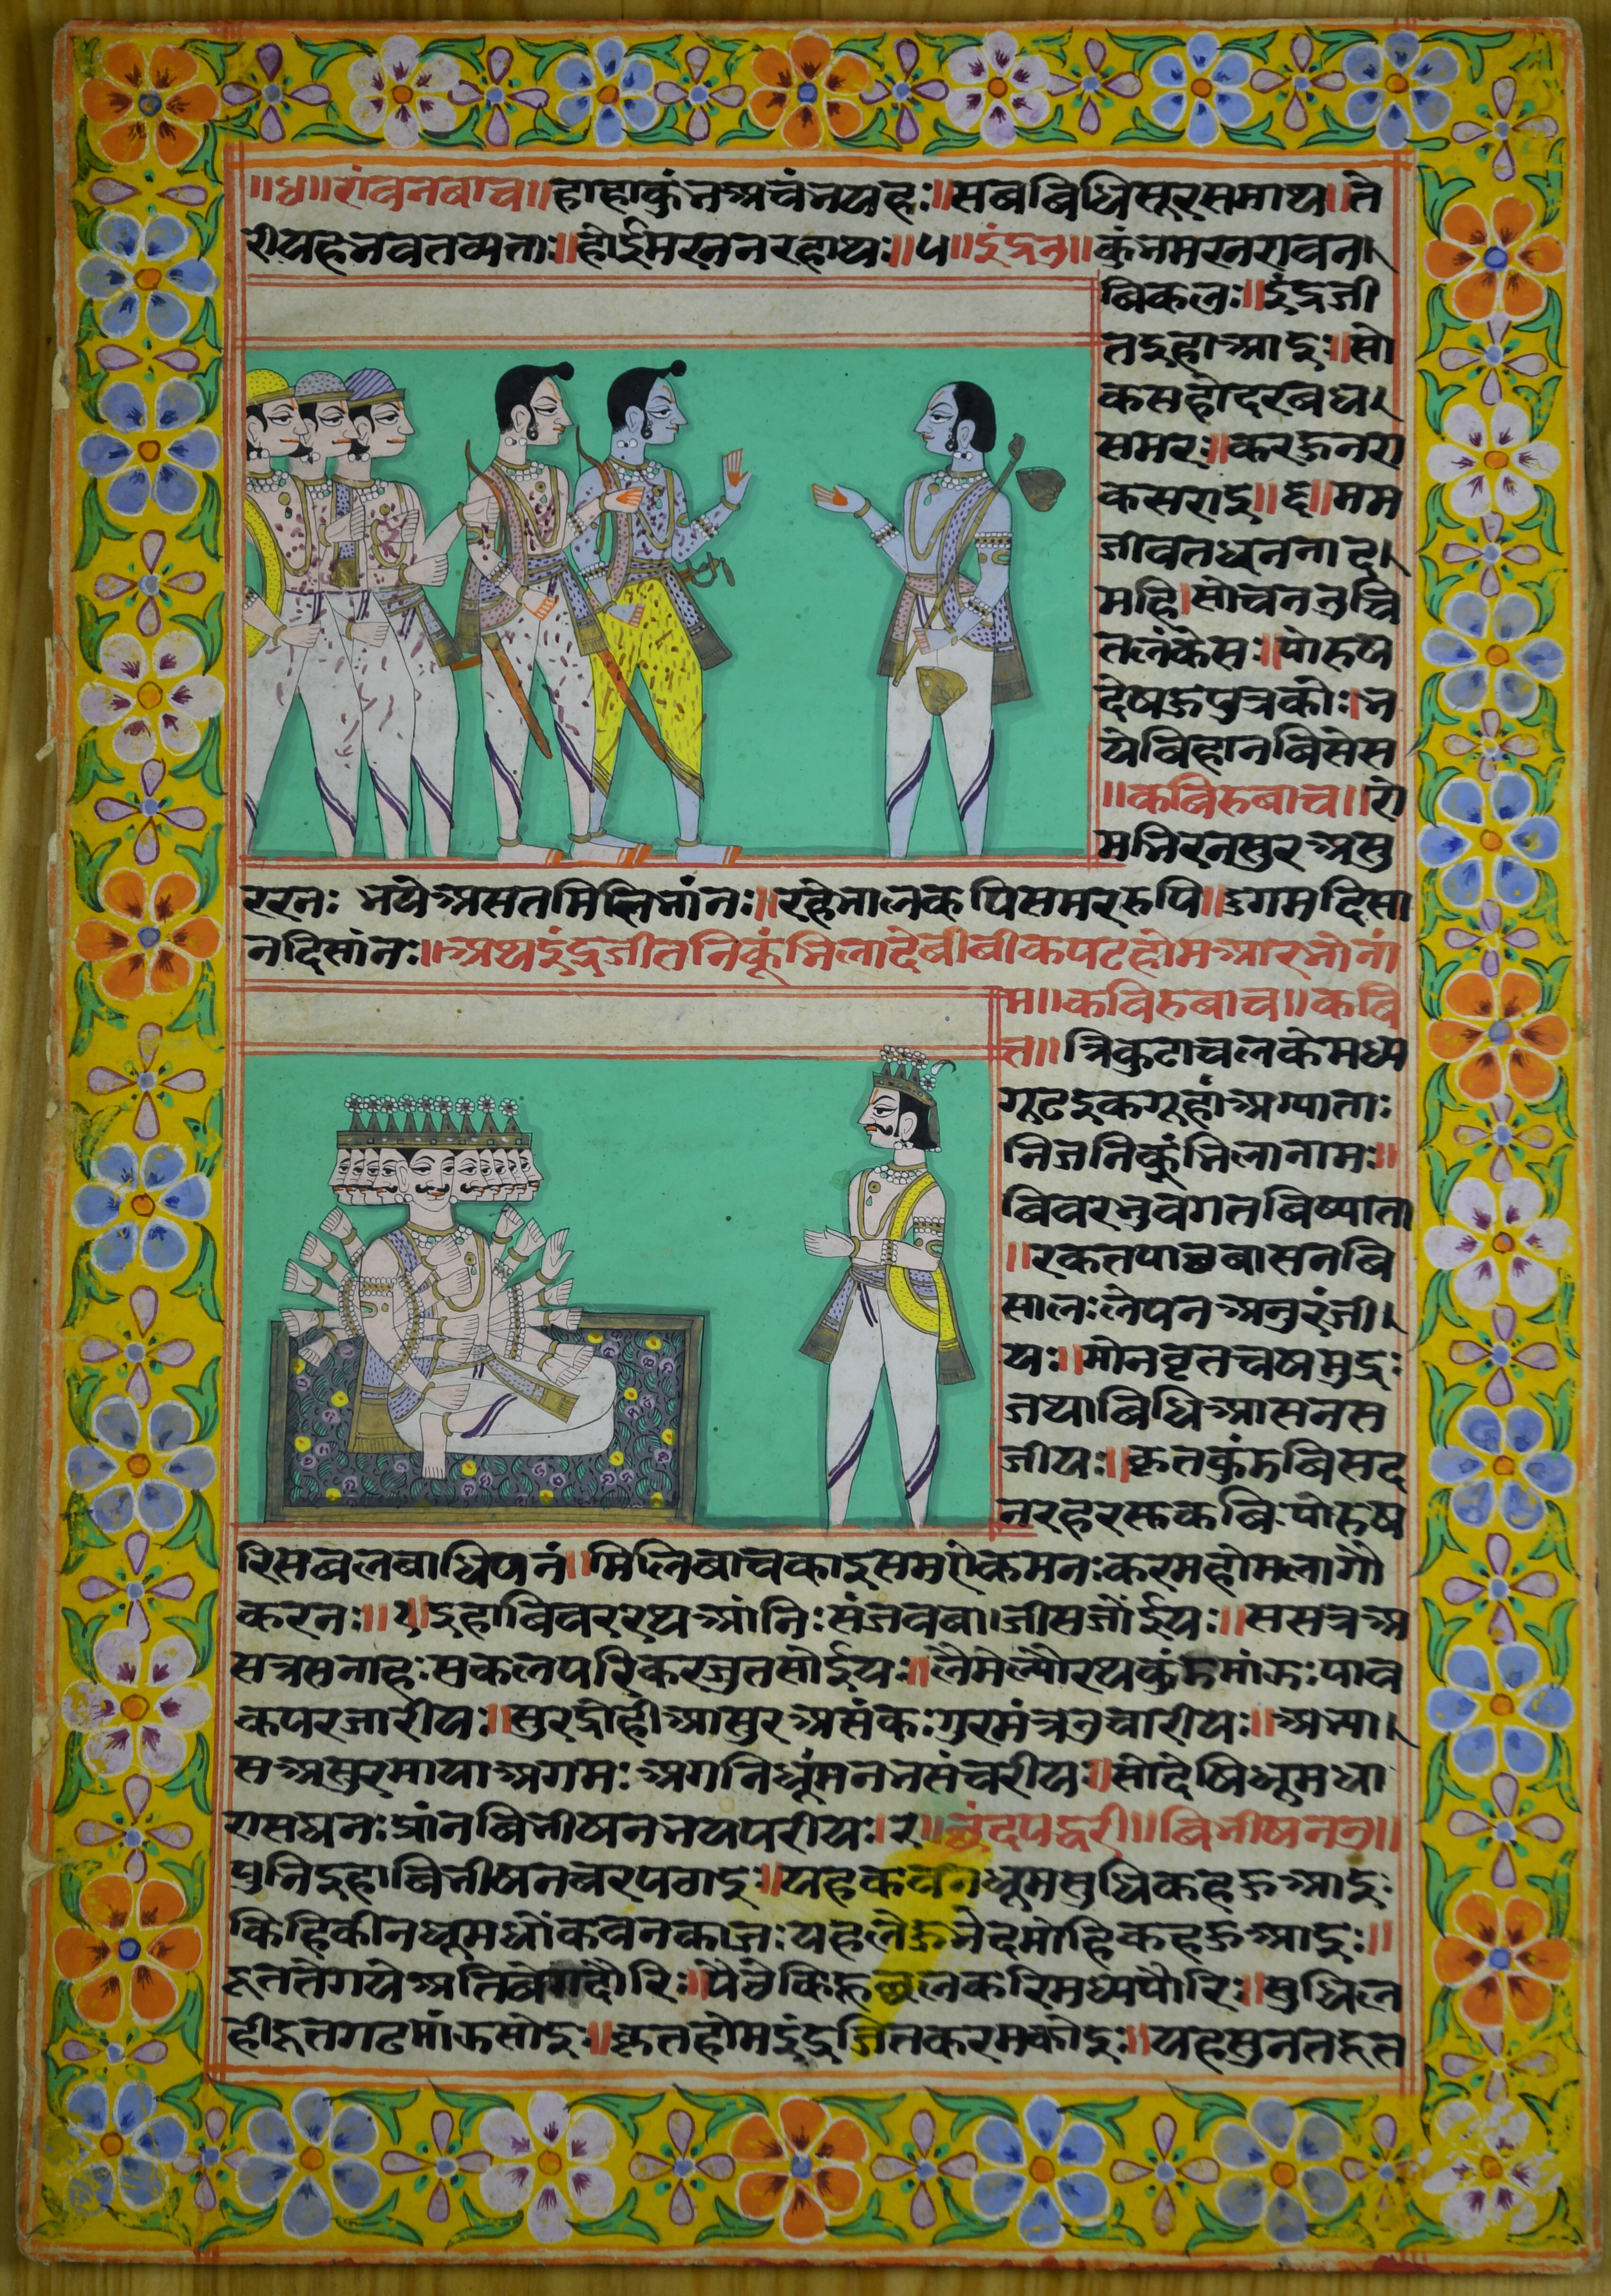 ॥४॥रांवनबाच॥हाहाकुंनअवंनयह:॥सबबिधिसूरसमाथ॥ते
रीयहनवतव्यता:॥होईमरननरहाथ:॥५॥इंद्रजी॥कुंनमरनरावन।
बिकल:॥इंद्रजी
तदुहाआइ:॥सो
कसहोदरबध।
समर:॥करऊनरा
कसराइ॥६॥मम
जीवतघननाद।
महि।सोचनउचि
तलंकेस:॥पोरुष
देषऊपुत्रको:।न
येबिहानबिसेस
॥कबिरुबाच॥रा
मभिरनसुरअसु
ररन: भयेअसतमिलिभांन:॥रहेभालकपिसमररुपि॥उगमदिसा
नदिसांन:॥अथइंद्रजीतनिकूंभिलादेबीबीकपटहोमआरभोनां
म॥कविरुबाच॥कबि
त॥त्रिकुटाचलकेमध्य
गूटइकगूहांअग्याता:
निजनिकुंभिलानाम:॥
बिवरभुवगतबिष्याता
॥रकतपाछबासनबि
साल:लेपनअनुरंजी।
य:॥मोनवृतचषमुद्र:
जथाबिधिआसनस
जीय:॥कृतकुंडबिसद
नरहरस्तकबि:पोरुष
रिसबलबाधिपनं॥मिलिबाचकाइसमरोकमन:करमहोमलागौ
करन:॥१॥इहाविवररथआंनि:संजवबा।जीसजोईय:॥ससत्रअ
सत्रसनाह:सकलपरिकरजुतसोईय:॥लैमेल्यौरथकुंडमांऊ:पाव
कपरजारीय:॥सुरद्रोहीआसुरअसंक:गुरमंत्रउचारीय:॥अभ्या।
सअसुरमायाअगम:अगनिधूंमनभसंचरीय॥सोदेषिधूमधा
रासघन:प्रांनबिभीषनभयपरीय:।२॥छंदपद्धरी॥बिभीषनउ॥
पुनिइहाबिभीषनचरपठाइ:॥यहकवनधूमसुधिकहऊआइ:
किहिकीनधूमधोंकवनकाज:यहलेऊभेदमोहिकहऊआइ:॥
दूततेगयेअतिबेगदौरि:॥पैठेकिहूछलकरिमध्यपौरि:॥सुधिल
हीदूतगटमांऊसोइ:॥कृतहोमइंद्रजितकरमकोइ:॥यहसुनतदूत